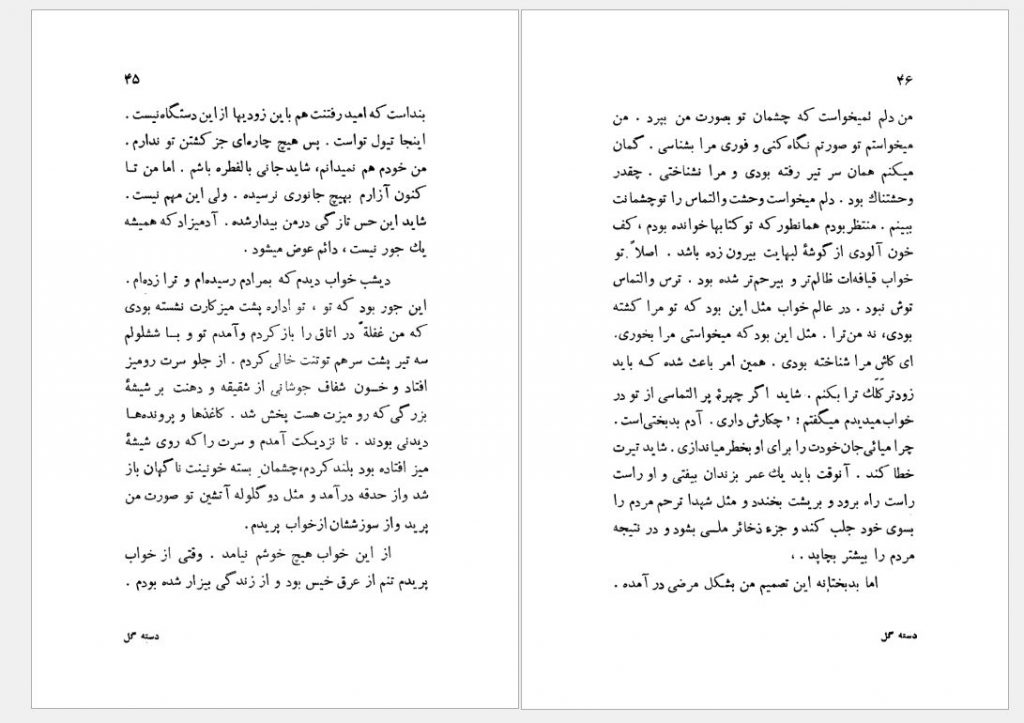 ۴۵
بنداست که امید رفتنت هم باین زودیها از این دستگاه نیست .
اینجا تیول تواست . پس هیچ چاره‌ای جز کشتن تو ندارم .
من خودم هم نمیدانم، شاید جانی بالفطره باشم . اما من تا
کنون آزارم بهیچ جانوری نرسیده . ولی این مهم نیست .
شاید این حس تازگی درمن بیدارشده . آدمیزاد که همیشه
یك جور نیست ، دائم عوض میشود .
دیشب خواب دیدم که بمرادم رسیده‌ام و ترا زده‌ام .
این جور بود که تو ، تو اداره پشت میزکارت نشسته بودی
که من غفلةً در اتاق را باز کردم وآمدم تو و بــا ششلولم
سه تیر پشت سرهم توتنت خالی کردم . از جلو سرت رومیز
افتاد و خــون شفاف جوشانی از شقیقه و دهنت بر شیشهٔ
بزرگی که رو میزت هست پخش شد . کاغذها و پرونده‌هــا
دیدنی بودند . تا نزدیکت آمدم و سرت را که روی شیشهٔ
میز افتاده بود بلند کردم،چشمانِ بسته خونینت ناگهان باز
شد واز حدقه درآمد و مثل دو گلوله آتشین تو صورت من
پرید واز سوزششان ازخواب پریدم.
از این خواب هیچ خوشم نیامد . وقتی از خواب
پریدم تنم از عرق خیس بود و از زندگی بیزار شده بودم .
دسته گل
۴۶
من دلم نمیخواست که چشمان تو بصورت من بپرد . من
میخواستم تو صورتم نگاه کنی و فوری مرا بشناسی . گمان
میکنم همان سر تیر رفته بودی و مرا نشناختی . چقدر
وحشتناك بود . دلم میخواست وحشت والتماس را توچشمانت
ببینم . منتظر بودم همانطور که تو کتابها خوانده بودم ، کف
خون آلودی از گوشهٔ لبهایت بیرون زده باشد . اصلاً تو
خواب قیافه‌ات ظالم‌تر و بیرحم‌تر شده بود . ترس والتماس
توش نبود . در عالم خواب مثل این بود که تو مرا کشته
بودی، نه من‌ترا . مثل این بود که میخواستی مرا بخوری.
ای کاش مرا شناخته بودی . همین امر باعث شده کــه باید
زودتر کَلَك ترا بکنم . شاید اگر چهرهٔ پر التماسی از تو در
خواب میدیدم میگفتم : , چکارش داری . آدم بدبختی‌است .
چرا میائی‌جان‌خودت را برای او بخطر میاندازی . شاید تیرت
خطا کند . آنوقت باید یك عمر بزندان بیفتی و او راست
راست راه برود و بریشت بخندد و مثل شهدا ترحم مردم را
بسوی خود جلب کند و جزء ذخائر ملــی بشود و در نتیجه
مردم را بیشتر بچاپد . ,
اما بدبختانه این تصمیم من بشکل مرضی در آمده .
دسته گل